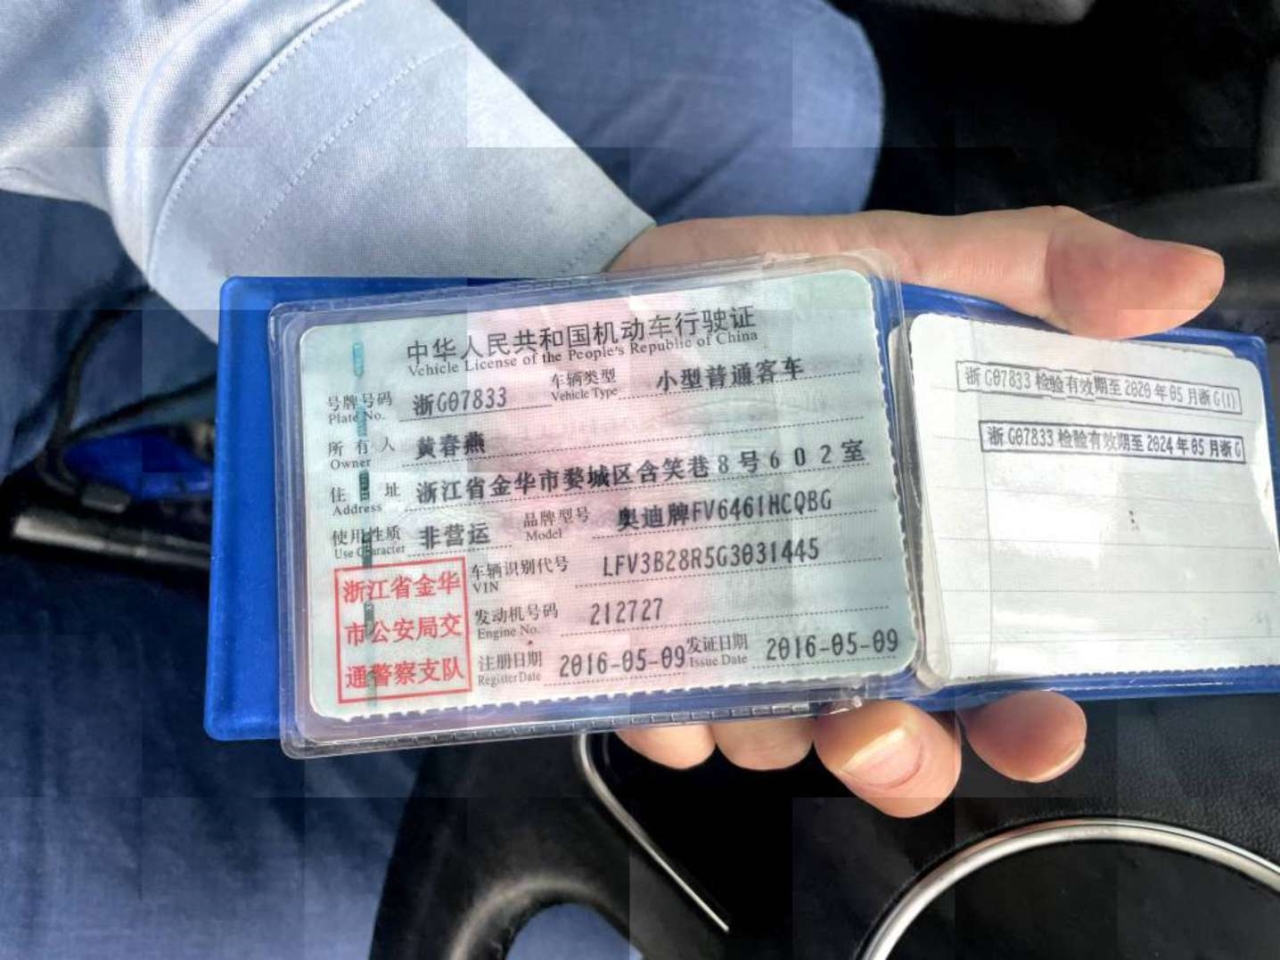 中华人民共和国机动车行驶证
Vehicle License of the People's Republic of China
号牌号码 浙G07833 车辆类型 小型普通客车
Plate No. Vehicle Type
所有人 黄春燕
Owner
住址 浙江省金华市婺城区含笑巷8号602室
Address
使用性质 非营运 品牌型号 奥迪牌FV6461HCQBG
Use Character Model
浙江省金华
市公安局交
通警察支队
车辆识别代号 LFV3B28R5G3031445
VIN
发动机号码 212727
Engine No.
注册日期 2016-05-09 发证日期 2016-05-09
Register Date Issue Date
浙G07833检验有效期至2020年05月浙G(1)
浙G07833检验有效期至2024年05月浙G